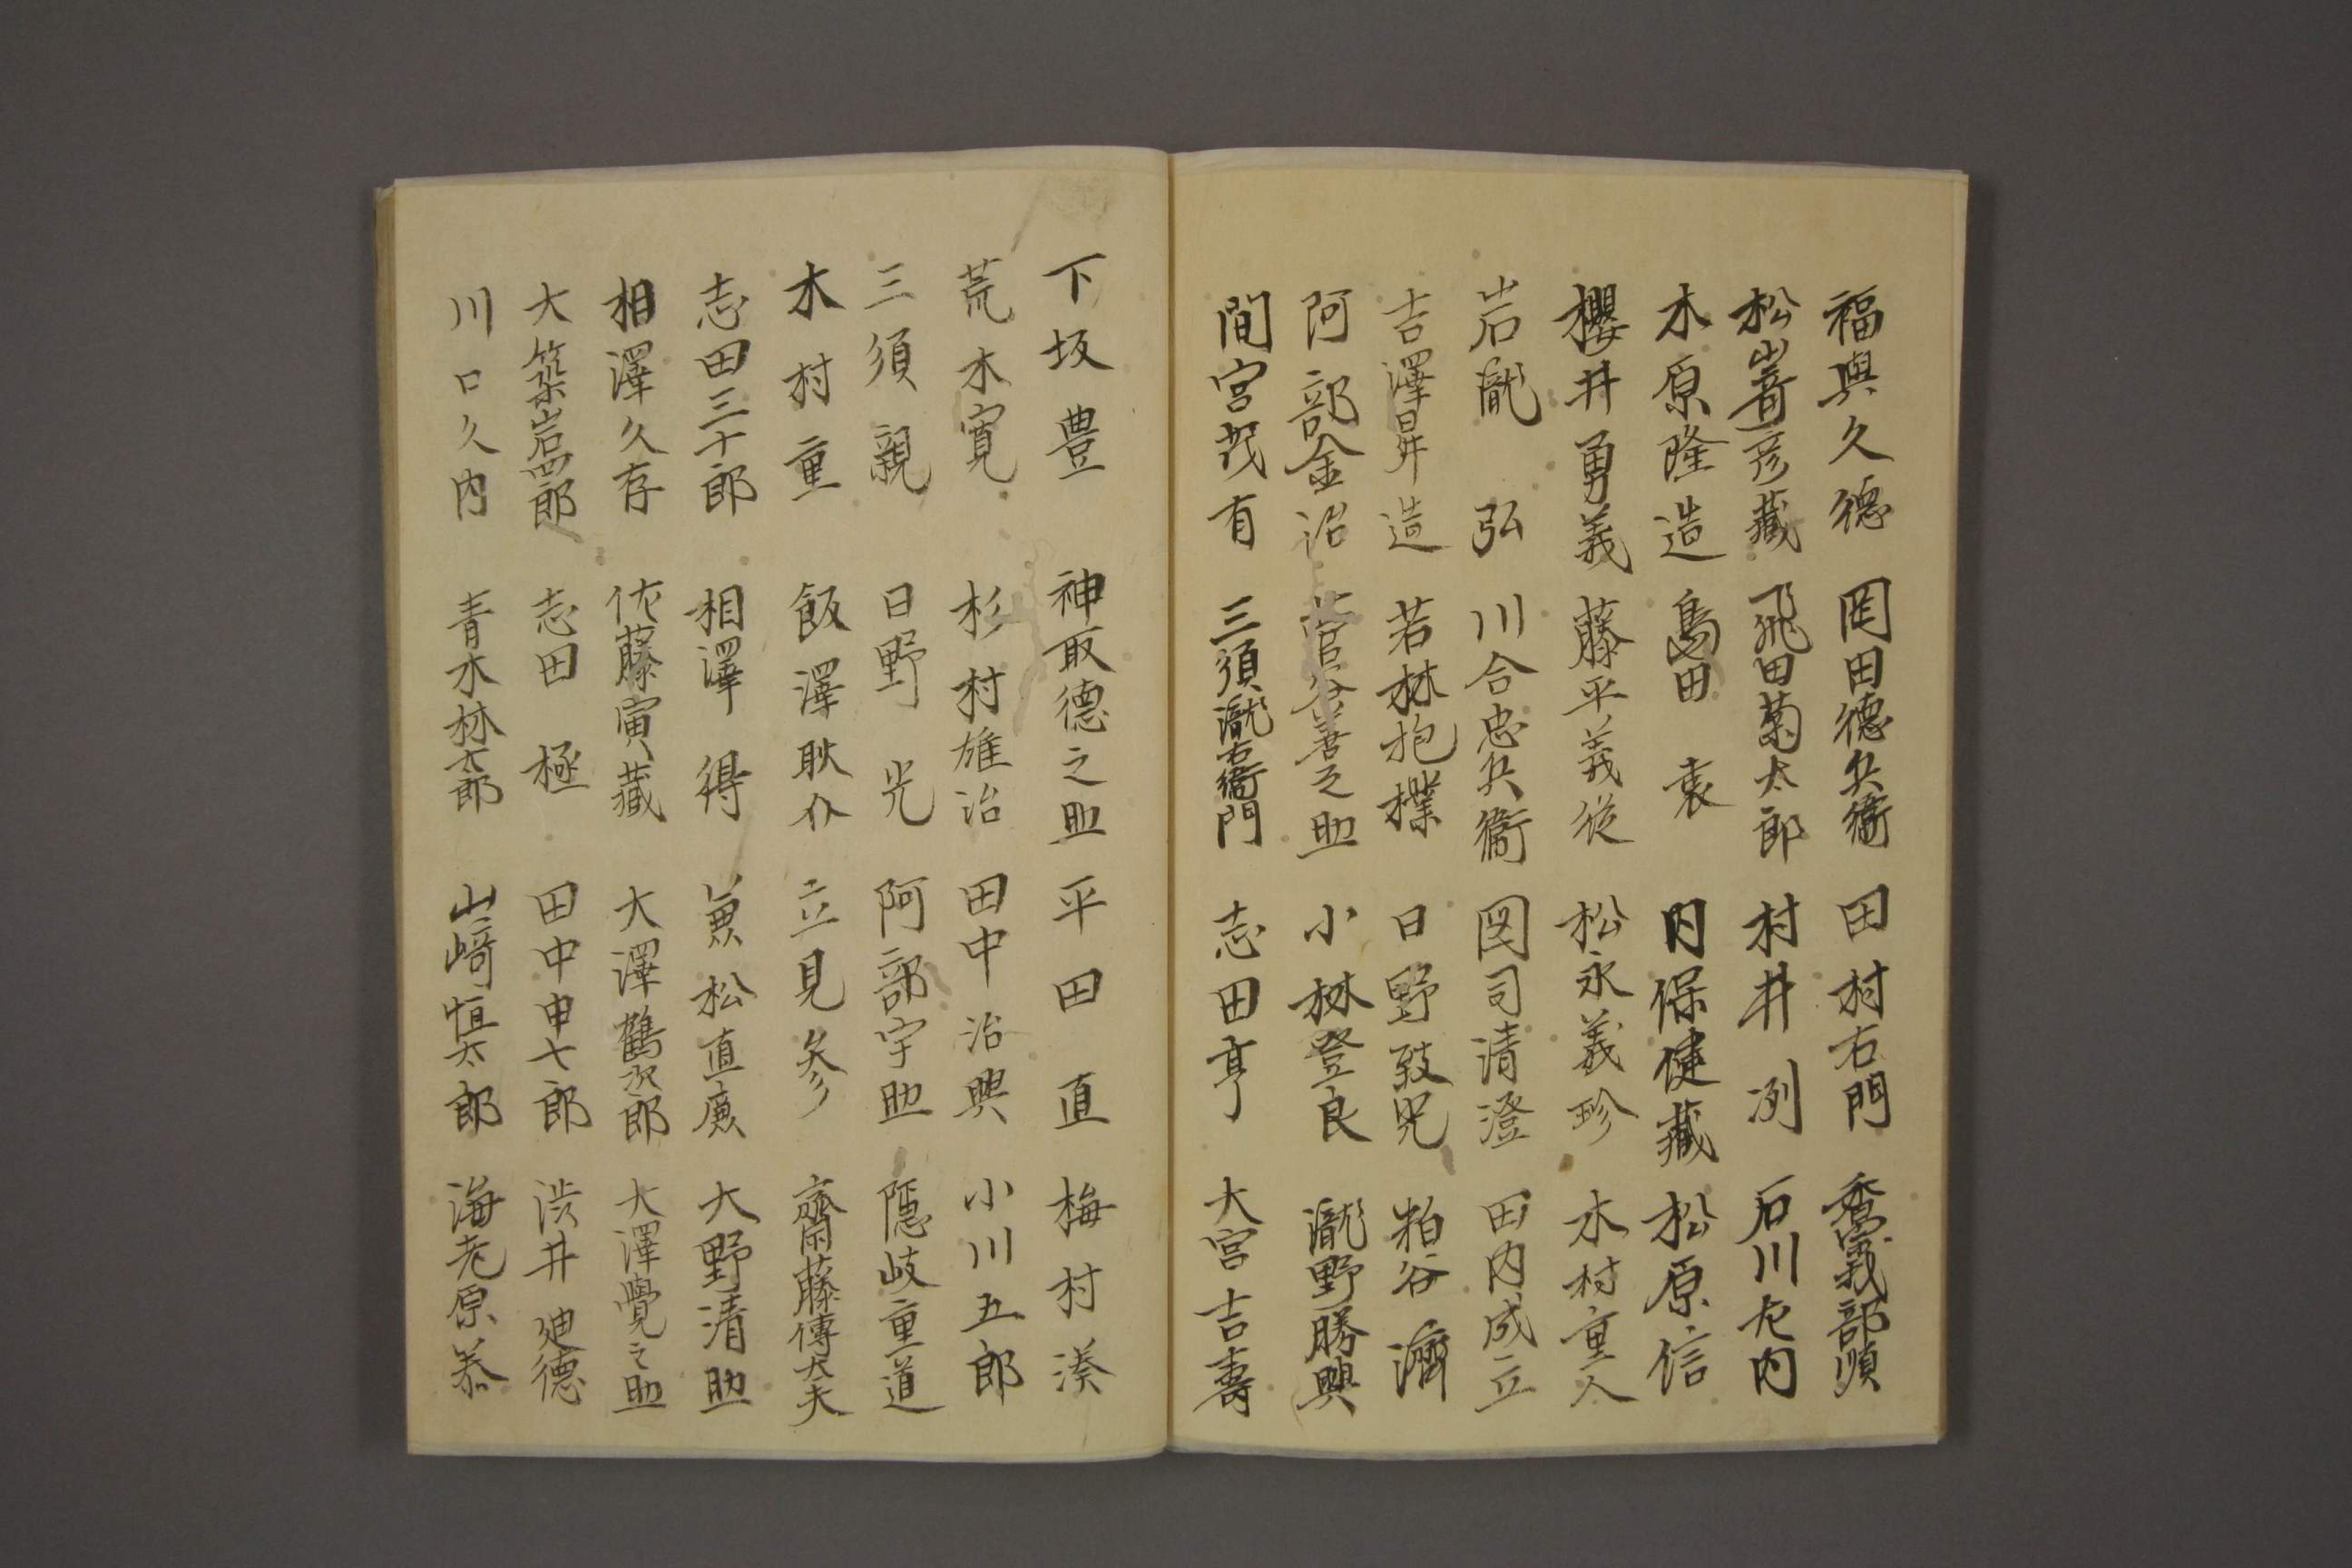 福與久德 岡田德兵衞 田村右門 香義部順
松嵜彦藏 飛田菊太郎 村井洌 石川左内
木原隆造 島田袁 内保健藏 松原信
櫻井勇義 藤平義從 松永義珍 木村重人
岩瀧弘 川合忠兵衞 図司清澄 田内成立
吉澤昇造 若林抱撲 日野致児 粕谷濟
阿部金治 菅谷善之助 小林登良 瀧野勝興
間宮茂有 三須瀧右衞門 志田亨 大宮吉壽
下坂豊 神取德之助 平田直 梅村湊
荒木寛 杉村雄治 田中治興 小川五郎
三須親 日野光 阿部宇助 隱岐重道
木村重 飯澤耿介 立見参 齋藤傳太夫
志田三十郎 相澤得 兼松直廉 大野清助
相澤久存 佐藤寅藏 大澤鶴次郎 大澤覺之助
大築岩四郎 志田極 田中申七郎 渋井廸德
川口久内 青木林太郎 山﨑恒太郎 海老原恭